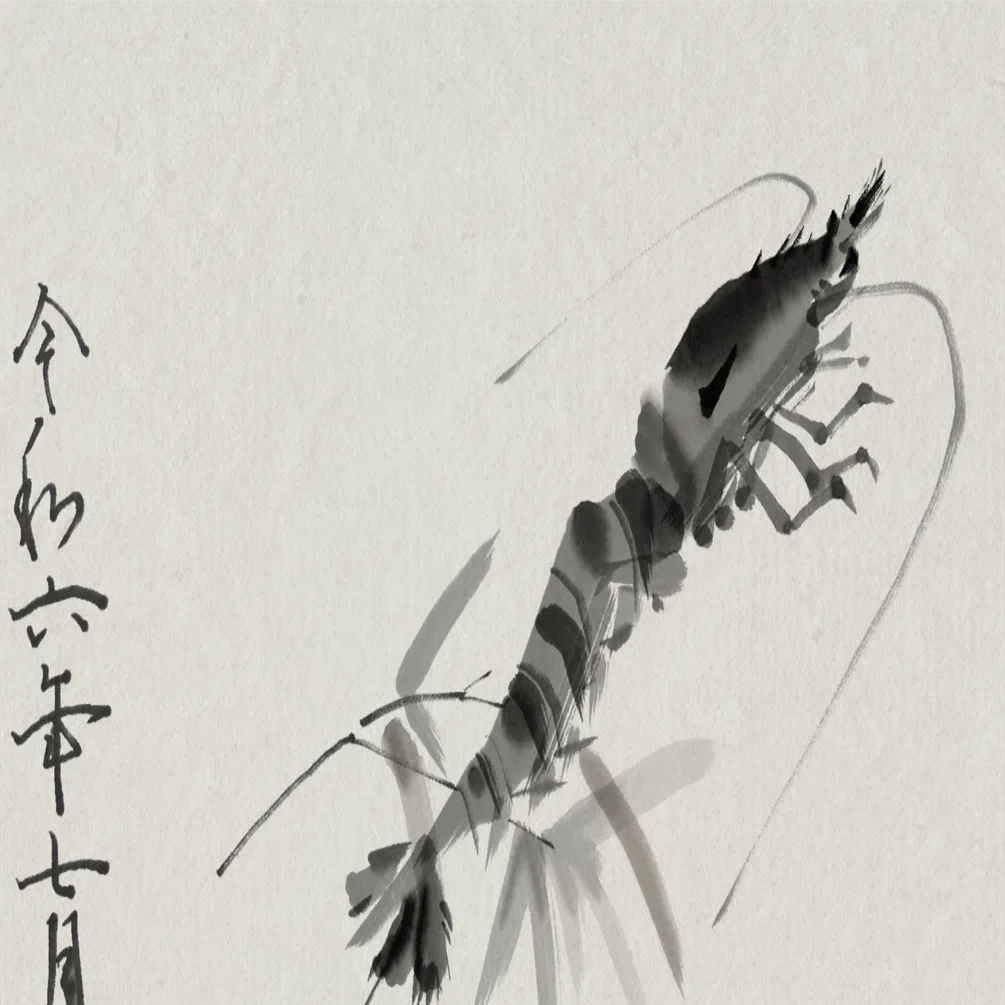 令和六年七月